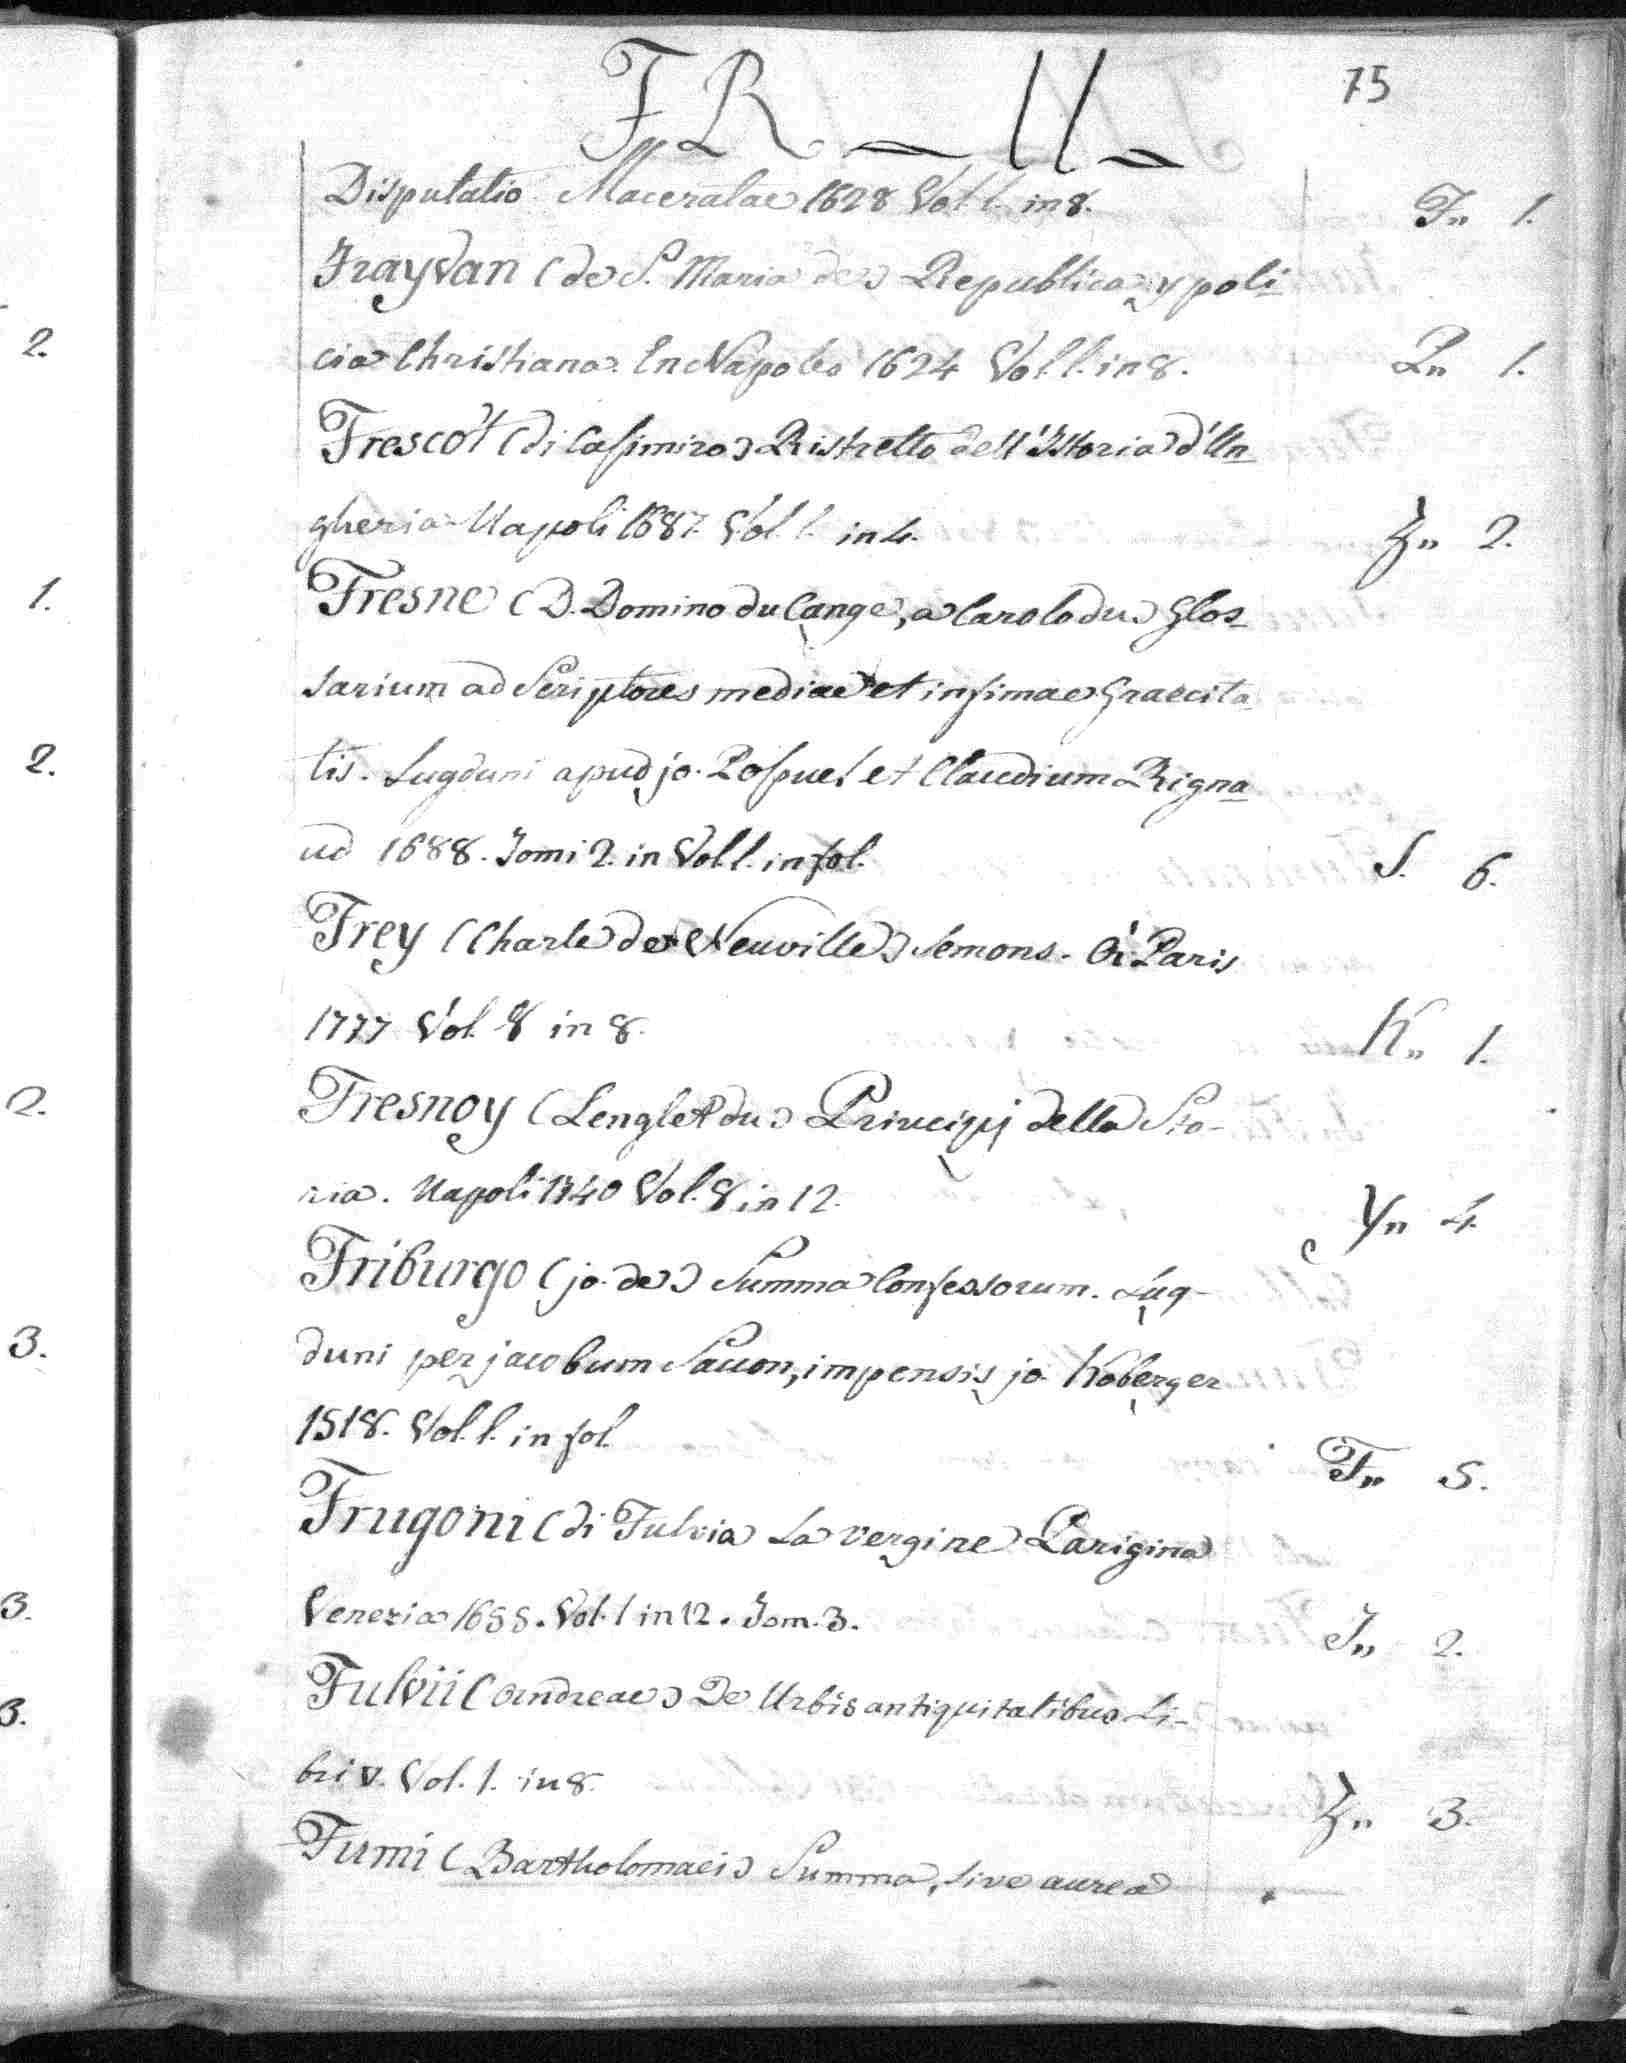 75
FR _ U _
Disputatio Maceratae 1628 Vol. 1. in 8. T" 1.
Frayvan (de S. Maria de) Republica y poli_
cia Christiana. En Napoles 1624 Vol. 1. in 8. P" 1.
Frescot (di Casimiro) Ristretto dell'Istoria d'Un_
gheria Napoli 1687. Vol. 1. in 4. Z" 2.
Fresne (D. Domino du Cange, a Carolo du) Glos_
sarium ad Scriptores mediae et infimae Graecita_
tis. Lugduni apud jo. Posuel et Claudium Rigna_
ud 1688. Tomi 2. in Vol 1. in fol. S. 6.
Frey (Charle de Neuville) Semons. à Paris
1777 Vol. 8 in 8. K" 1.
Fresnoy (Lenglet du) Principj della Sto-
ria. Napoli 1740 Vol. 8 in 12. Y" 4.
Friburgo (jo. de) Summa Confessorum. Lug-
duni per jacobum Sacon, impensis jo. Koberger
1518. Vol. 1. in fol. T" 5.
Frugoni (di Fulvia La Vergine Parigina
Venezia 1655. Vol. 1 in 12. Tom. 3. I" 2.
Fulvii (Andreae) De Urbis antiquitatibus Li-
bri V. Vol. 1. in 8. Z" 3.
Fumi (Bartholomaei) Summa, sive aurea
2.
1.
2.
2.
3.
3.
3.